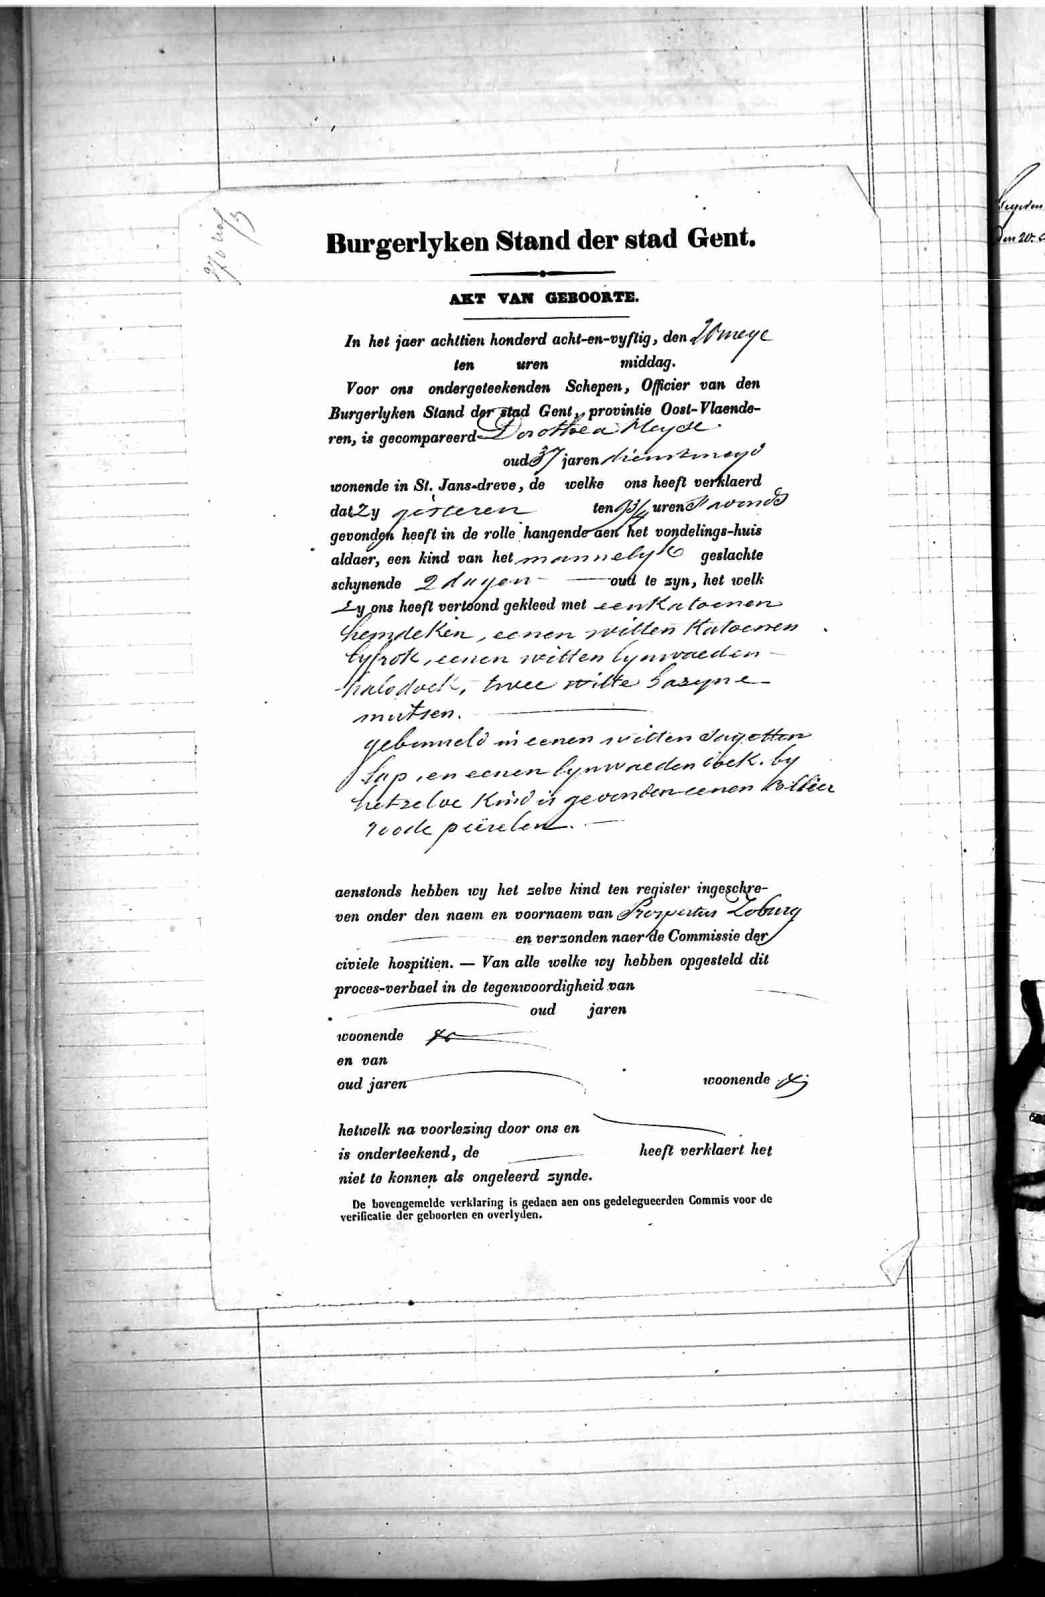 Burgerlyken Stand der stad Gent.
AKT VAN GEBOORTE.
In het jaer achttien honderd acht-en-vyftig, den 20 meye
ten uren middag.
Voor ons ondergeteekenden Schepen, Officier van den
Burgerlyken Stand der stad Gent, provintie Oost-Vlaende-
ren, is gecompareerd Dorothea Meyse
oud 37 jaren dienstmeyd
wonende in St. Jans-dreve, de welke ons heeft verklaerd
dat Zy gisteren ten 9 3/4 uren S'avonds
gevonden heeft in de rolle hangende aen het vondelings-huis
aldaer, een kind van het mannelyk geslachte
schynende 2 dagen oud te zyn, het welk
Zy ons heeft vertoond gekleed met een Katoenen
hemdeken, eenen witten Katoenen
lyfrok, eenen witten lynwaeden
halsdoek, twee witte bazyne
mutsen.
gebunseld in eenen witten
lap, en eenen lynwaeden doek. by
hetzelve Kind is gevonden eenen Collier
roode peirelen.
aenstonds hebben wy het zelve kind ten register ingeschre-
ven onder den naem en voornaem van Prospertus Loburg
en verzonden naer de Commissie der
civiele hospitien. — Van alle welke wy hebben opgesteld dit
proces-verbael in de tegenwoordigheid van
oud jaren
woonende
en van
oud jaren woonende
hetwelk na voorlezing door ons en
is onderteekend, de heeft verklaert het
niet te konnen als ongeleerd zynde.
De bovengemelde verklaring is gedaen aen ons gedelegueerden Commis voor de
verificatie der geboorten en overlyden.
den 20